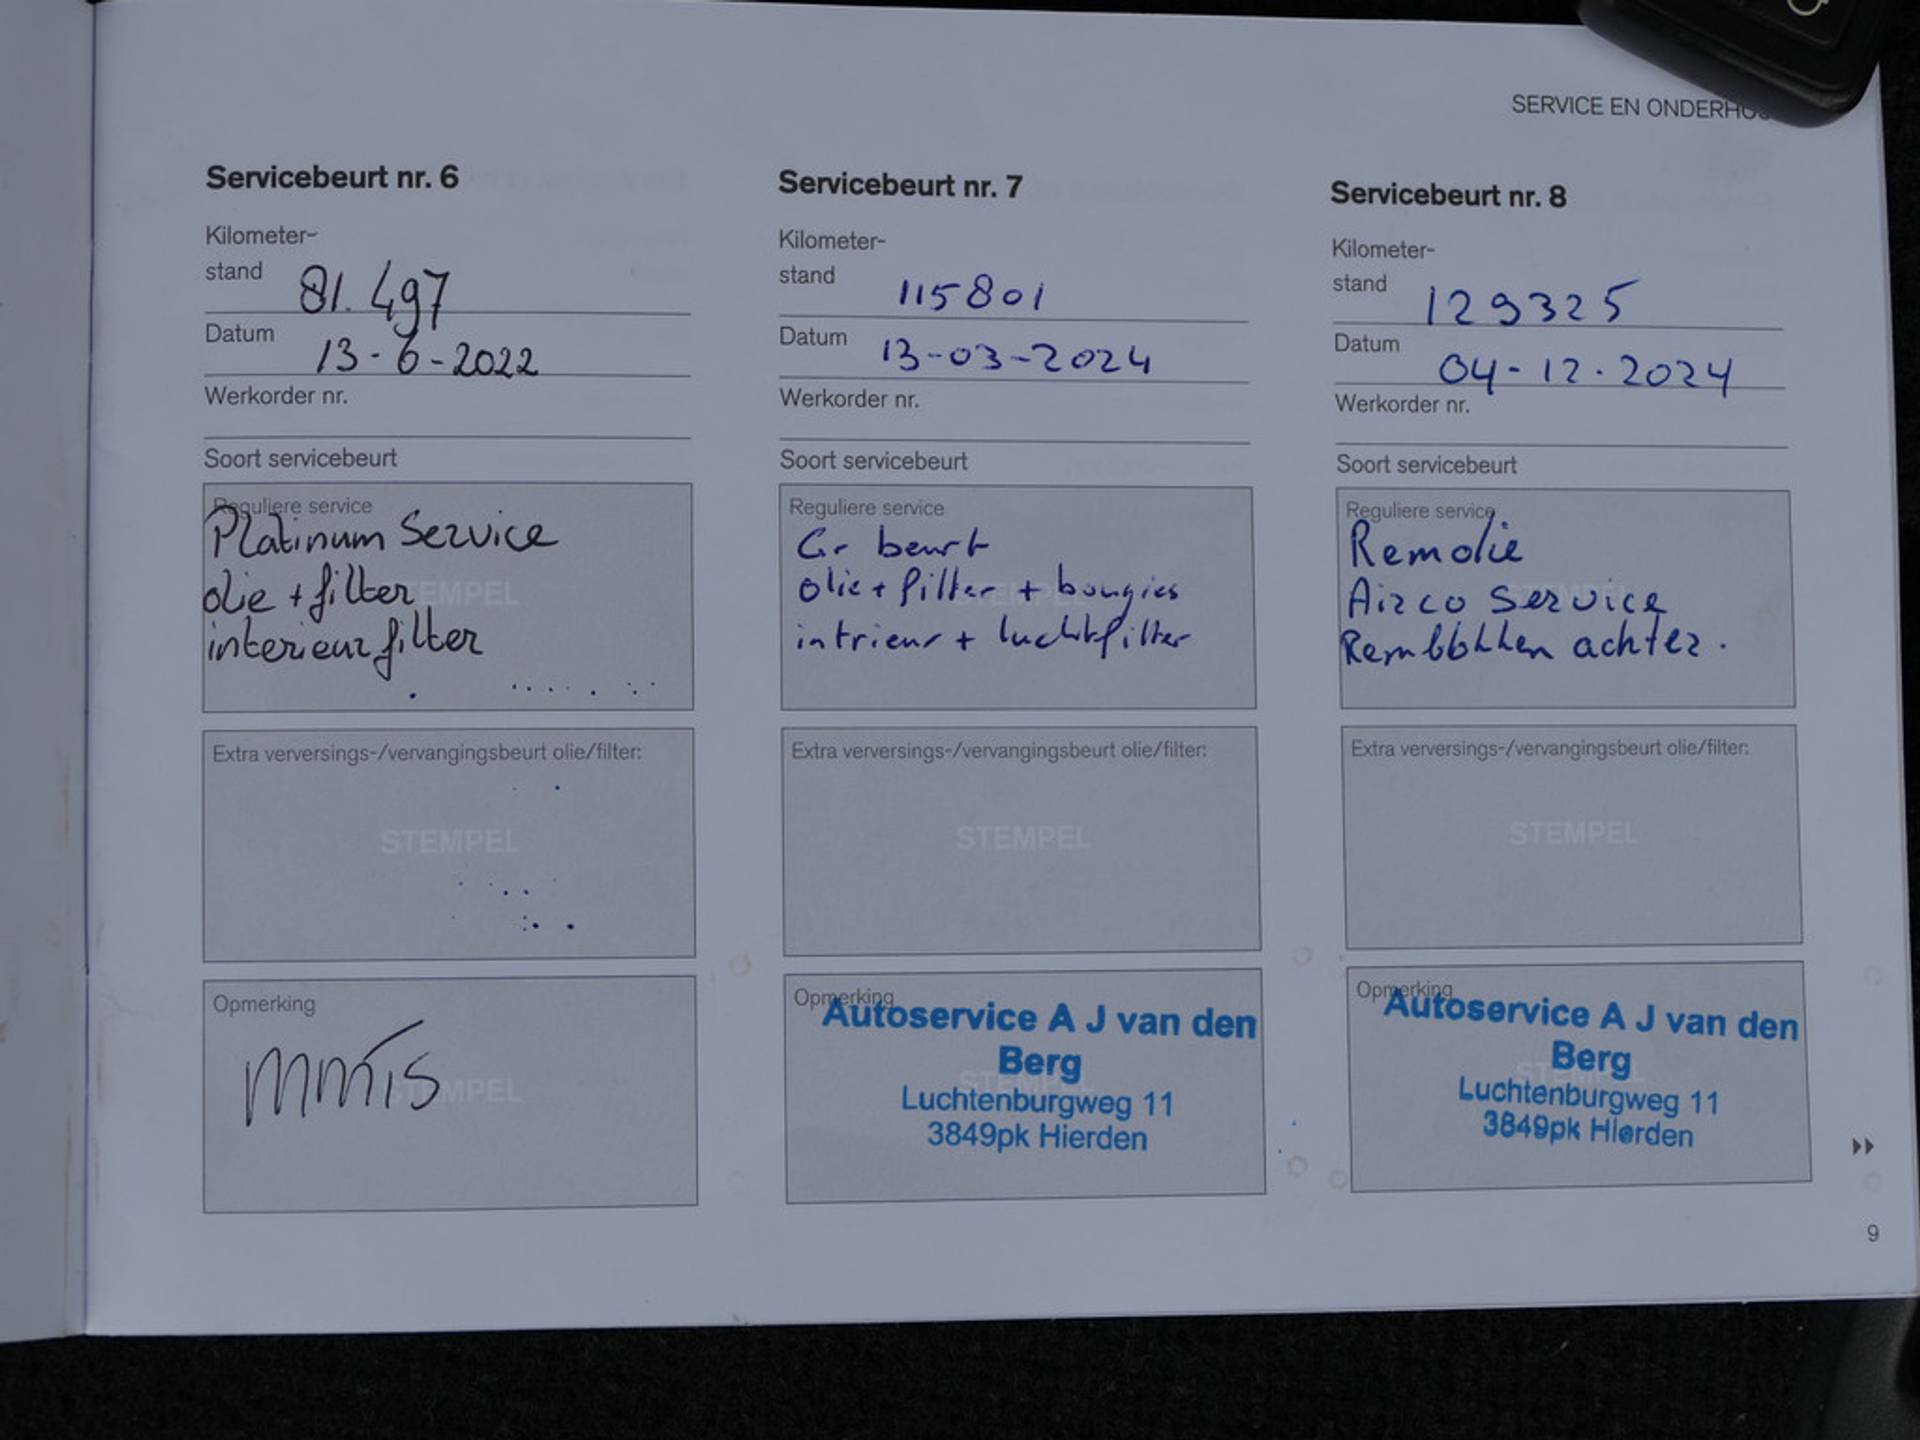 SERVICE EN ONDERHO
Servicebeurt nr. 6
Kilometer-
stand 81.497
Datum 13-6-2022
Werkorder nr.
Soort servicebeurt
Reguliere service
Platinum Service
olie + filter
interieurfilter
STEMPEL
Extra verversings-/vervangingsbeurt olie/filter:
STEMPEL
Opmerking
STEMPEL
Servicebeurt nr. 7
Kilometer-
stand 115801
Datum 13-03-2024
Werkorder nr.
Soort servicebeurt
Reguliere service
Gr beurt
olie + filter + bougies
intrieur + luchtfilter
STEMPEL
Extra verversings-/vervangingsbeurt olie/filter:
STEMPEL
Opmerking
STEMPEL
Autoservice A J van den
Berg
Luchtenburgweg 11
3849pk Hierden
Servicebeurt nr. 8
Kilometer-
stand 129325
Datum 04-12-2024
Werkorder nr.
Soort servicebeurt
Reguliere service
Remolie
Airco Service
Remblokken achter.
STEMPEL
Extra verversings-/vervangingsbeurt olie/filter:
STEMPEL
Opmerking
STEMPEL
Autoservice A J van den
Berg
Luchtenburgweg 11
3849pk Hierden
9